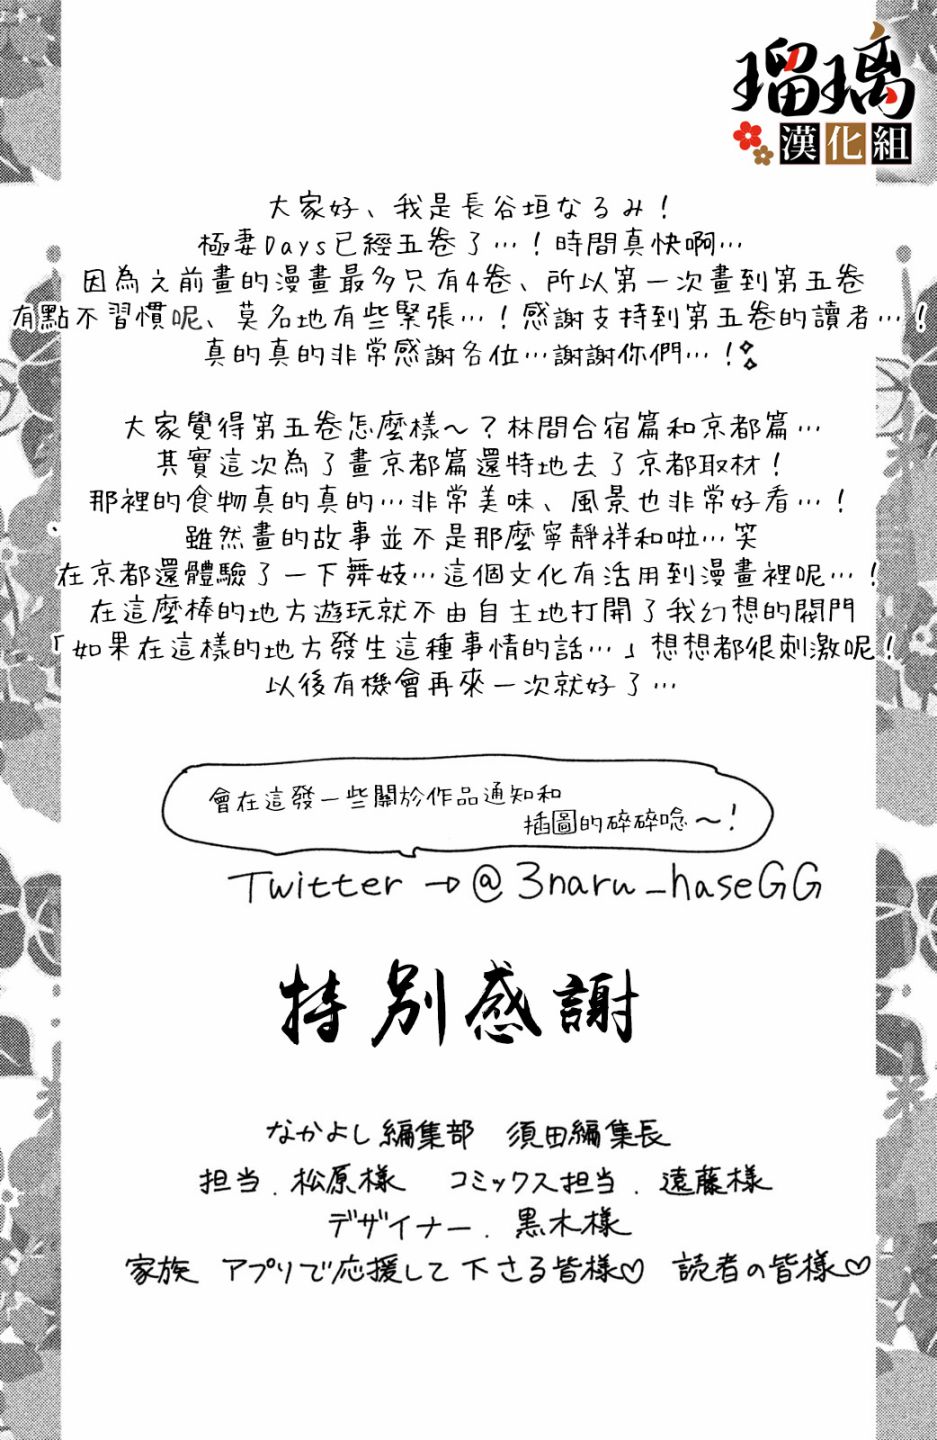 瑠璃
漢化組
大家好、我是長谷垣なるみ！
極妻Days已經五卷了…！時間真快啊…
因為之前畫的漫畫最多只有4卷、所以第一次畫到第五卷
有點不習慣呢、莫名地有些緊張…！感謝支持到第五卷的讀者…！
真的真的非常感謝各位…謝謝你們…！
大家覺得第五卷怎麼樣～？林間合宿篇和京都篇…
其實這次為了畫京都篇還特地去了京都取材！
那裡的食物真的真的…非常美味、風景也非常好看…！
雖然畫的故事並不是那麼寧靜祥和啦…笑
在京都還體驗了一下舞妓…這個文化有活用到漫畫裡呢…！
在這麼棒的地方遊玩就不由自主地打開了我幻想的開門
「如果在這樣的地方發生這種事情的話…」想想都很刺激呢！
以後有機會再來一次就好了…
會在這發一些關於作品通知和
插圖的碎碎唸～！
Twitter→@3naru_haseGG
特別感謝
なかよし編集部 須田編集長
担当.松原様 コミックス担当.遠藤様
デザイナー.黒木様
家族 アプリで応援して下さる皆様♡ 読者の皆様♡